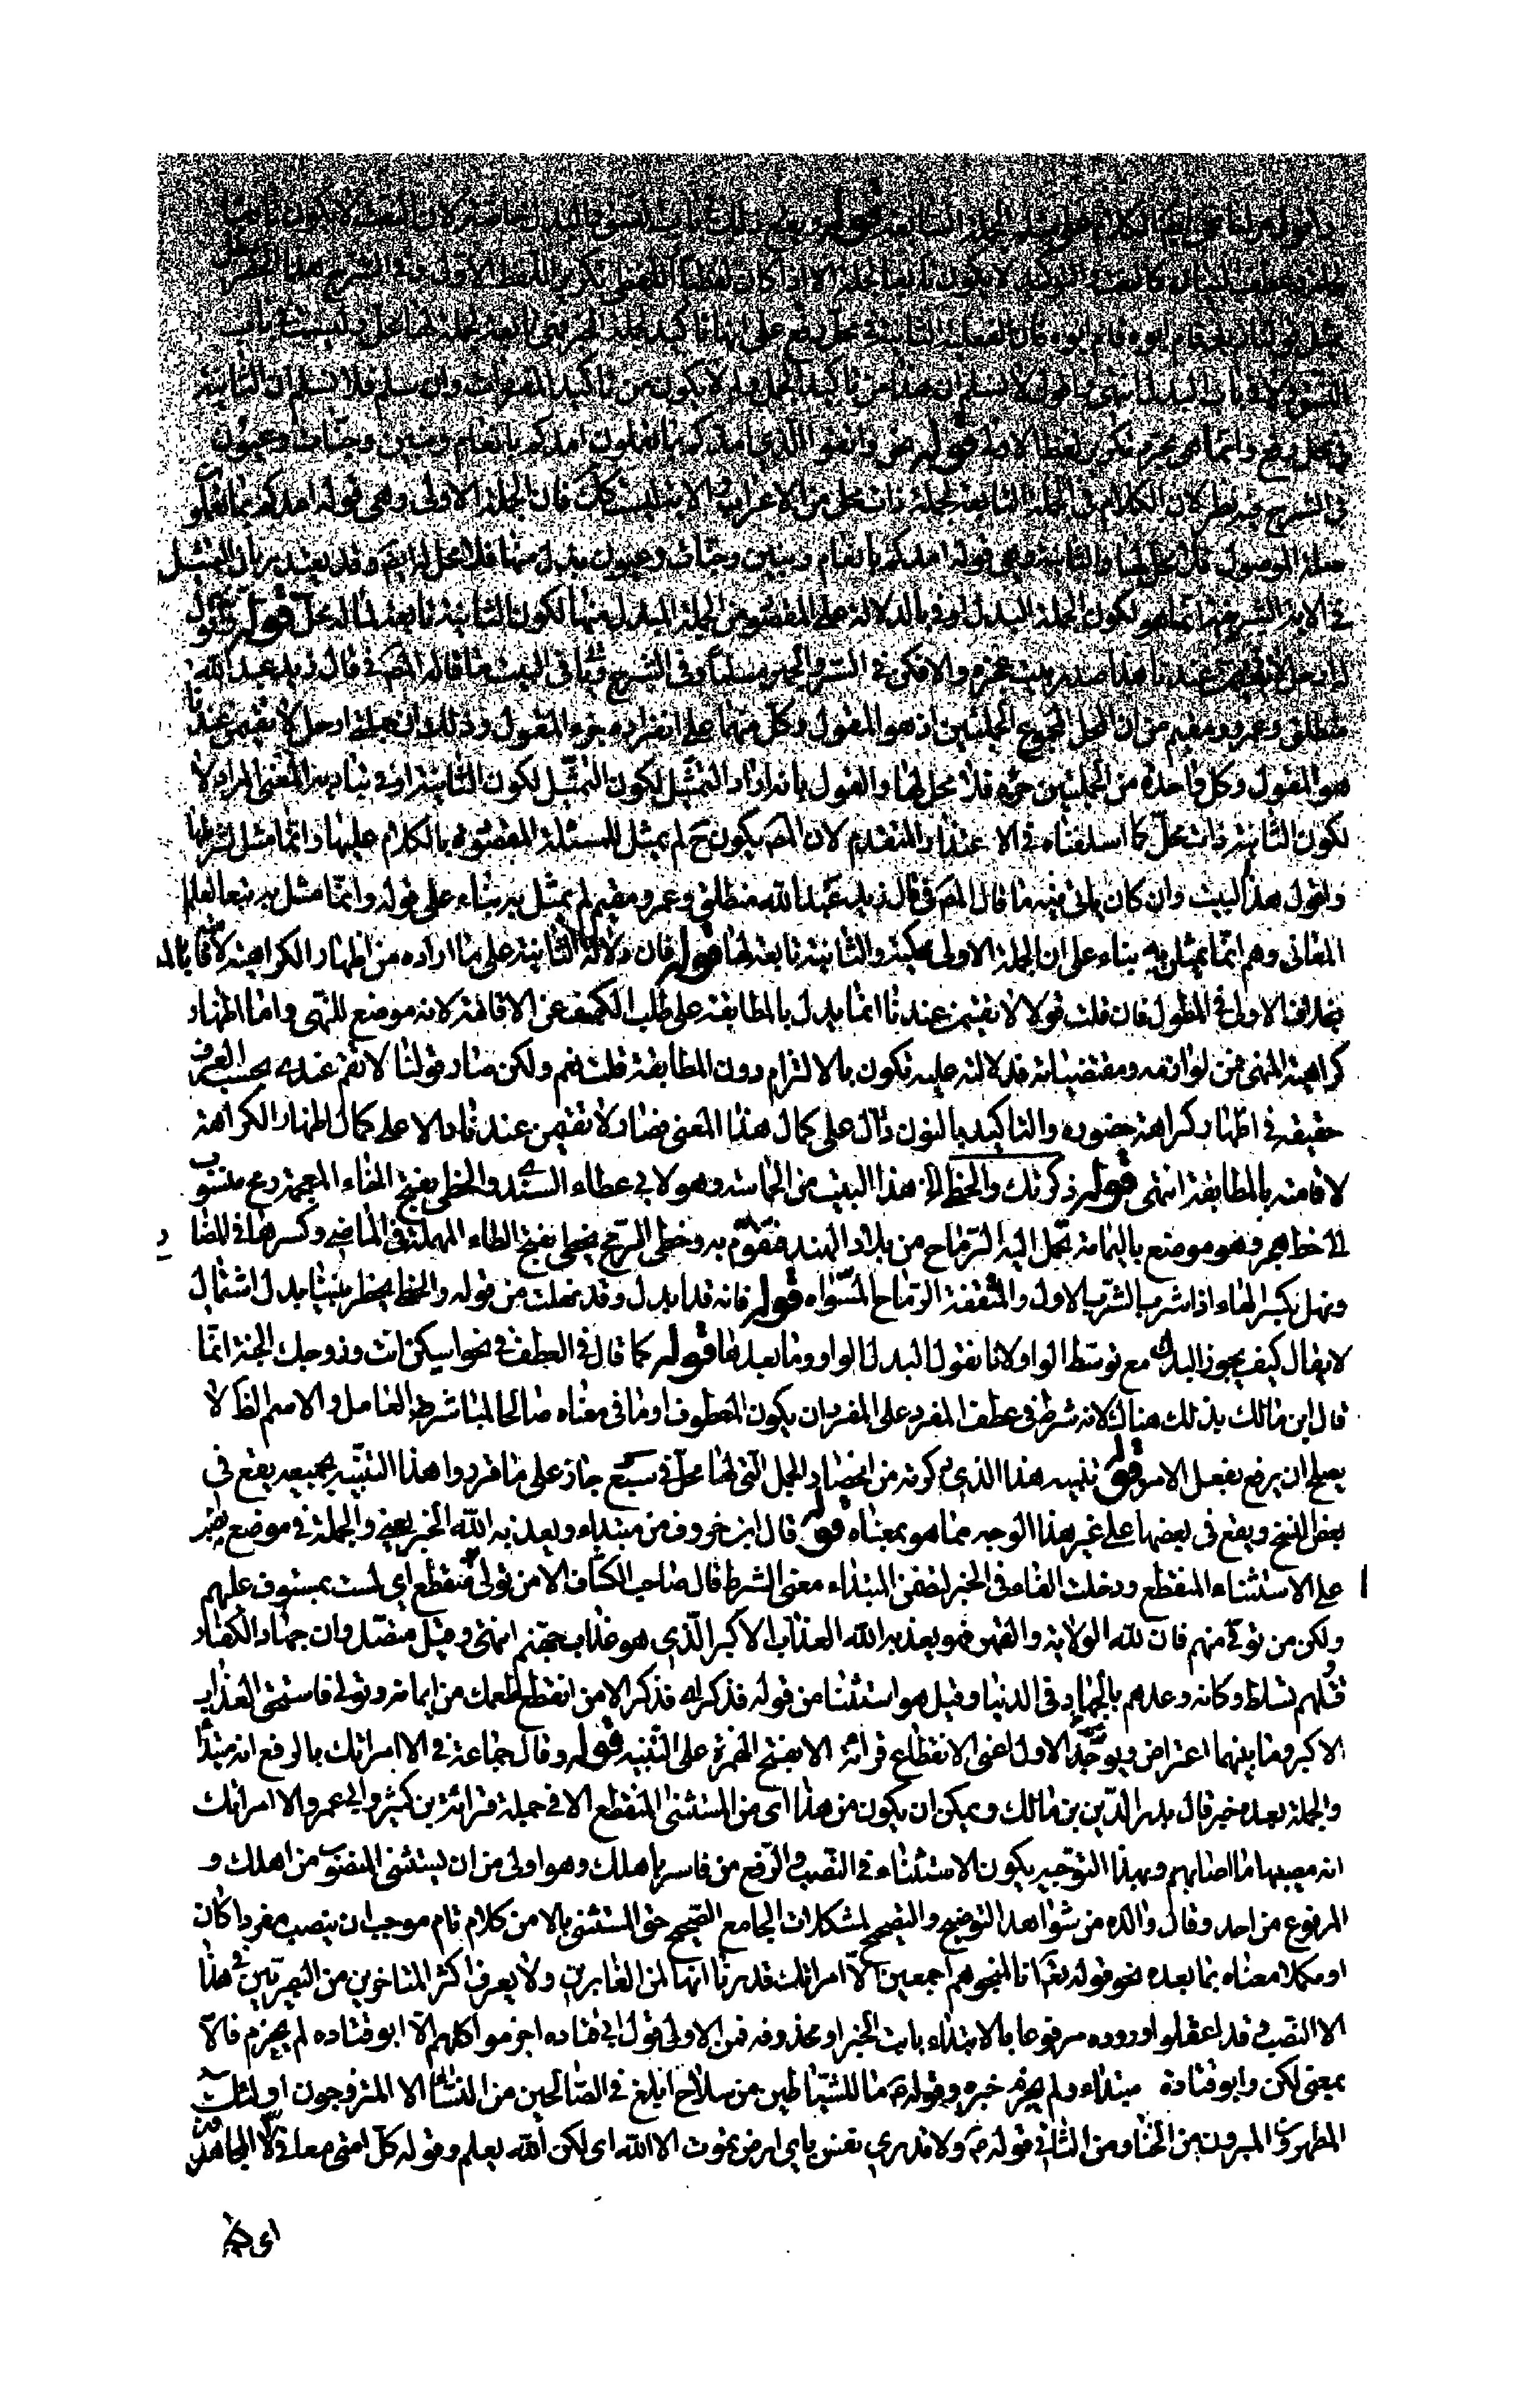 قوله ويقع ذلك في بابي النسق والبدل خاصة لان النعت لا يكون تابعا
عطف البيان كالنعت والتوكيد لا يكون تابعا لجملة الا اذا كان لفظيا اللفظي تكرير اللفظ الاول وفي الشرح
زيد قام ابوه قام ابوه فان الفعلية الثانية في محل رفع على انها تاكيد لجملة الخبر فهي تابعة لجملة لها محل وليست في باب
النسق ولا في باب البدل انتهى واقول لا نسلم ان هذا من تاكيد الجمل لم لا يكون من تاكيد المفردات وان سلم فلا نسلم ان الثانية
في محل رفع وانما هي مجرد تكرير لفظ الاول قوله نحو واتقوا الذي امدكم بما تعلمون امدكم بانعام وبنين وجنات وعيون
في الشرح فيه نظر لان الكلام في الجملة التابعة لجملة ذات محل من الاعراب والاية ليست كك فان الجملة الاولى وهي قوله امدكم بما تعلمون
صلة الموصول فلا محل لها والثانية وهي قوله امدكم بانعام وبنين وجنات وعيون بدل منها فلا محل لها ايضا وقد يعتذر بان التمثيل
في الاية الشريفة انما هو لكون الجملة البدل اوفى بالدلالة على المقصود من الجملة المبدل منها لا لكون الثانية تابعة لما له محل قوله اقول
له ارحل لا تقيمن عندنا هذا صدر بيت عجزه والا فكن في السر والجهر مسلما وفي الشرح وياتي في البيت ما قاله المص في قال زيد عبد الله
منطلق وعمرو مقيم من ان المحل لمجموع الجملتين اذ هو المقول وكل منهما على انفراده جزء المقول وذلك ان جملة ارحل لا تقيمن عندنا
هو المقول وكل واحدة من الجملتين جزءه فلا محل لها والقول بانه اراد التمثيل لكون التمثيل لكون الثانية اوفى بتادية المعنى المراد لا
لكون الثانية ذات محل كما اسلفناه في الاعتذار المتقدم لان المص يكون ح لم يمثل للمسئلة المقصودة بالكلام عليها وانما مثل لشرطها
واقول هذا البيت وان كان ياتي فيه ما قال المص في قال زيد عبد الله منطلق وعمرو مقيم لم يمثل به بناء على قوله وانما مثل به تبعا لعلم
المعاني وهم انما يمثلون به بناء على ان الجملة الاولى محكية والثانية تابعة لها قوله فان دلالة الثانية على ما اراده من اظهار الكراهية لاقامته بالمـ
بخلاف الاولى في المطول فان قلت قولا لا تقيمن عندنا انما يدل بالمطابقة على طلب الكف عن الاقامة لانه موضع للنهي واما اظهار
كراهية المنهي فمن لوازمه ومقتضياته فدلالته عليه تكون بالالتزام دون المطابقة قلت نعم ولكن صار قولنا لا تقم عندي بحسب العرف
حقيقة في اظهار كراهة حضوره والتاكيد بالنون دال على كمال هذا المعنى فصار لا تقيمن عندنا دالا على كمال اظهار الكراهة
لاقامته بالمطابقة انتهى قوله ذكرتك والخطي الخ هذا البيت من الحماسة وهو لابي عطاء السندي والخطي بفتح الخاء المعجمة رمح منسوب
الى خط هجر وهو موضع باليمامة تحمل اليه الرماح من بلاد الهند فتقوم به وخطى الرمح يخطي بفتح الطاء المهملة في الماضي وكسرها في المضارع
ونهل بكسر الهاء اذا شرب الشرب الاول والمثقفة الرماح المسواه قوله فانه قد ابدل وقد نهلت من قوله والخطي يخطر بيننا بدل اشتمال
لا يقال كيف يجوز البدل مع توسط الواو لانا نقول البدل الواو وما بعدها قوله كما قال في العطف في نحو اسكن انت وزوجك الجنة انما
قال ابن مالك بذلك هناك لانه شرط في عطف المفرد على المفرد ان يكون المعطوف او ما في معناه صالحا لمباشرة العامل والاسم الظ لا
يصلح ان يرفع بفعل الامر قوله تنبيه هذا الذي ذكرته من انحصار الجمل التي لها محل في سبع جاز على ما قرروا هذا التنبيه بجميعه يقع في
بعض النسخ ويقع في بعضها على غير هذا الوجه مما هو بمعناه قوله قال ابن خروف من مبتداء ويعذبه الله الخبر يعني والجملة في موضع نصب
على الاستثناء المنقطع ودخلت الفاء في الخبر لتضمن المبتداء معنى الشرط قال صاحب الكشاف الا من تولى منقطع اي لست بمستوف عليهم
ولكن من تولى منهم فان لله الولاية والقهر فهو يعذبه الله العذاب الاكبر الذي هو عذاب جهنم انتهى وقيل متصل وان جهاد الكفار
وقتلهم تسلط وكانه وعدهم بالجهاد في الدنيا وقيل هو استثنا من قوله فذكر اي فذكر الا من انقطع طمعك من ايمانه وتولى فاستحق العذاب
الاكبر وما بينهما اعتراض ويوجه الاول اعني الانقطاع قرائة الا بفتح الهمزة على التنبيه قوله وقال جماعة في الا امراتك بالرفع انه مبتدأ
والجملة بعده خبر قال بدر الدين بن مالك ويمكن ان يكون من هذا اي من المستثنى المنقطع الا في جملة قرائة بن كثير وابي عمرو الا امراتك
انه مصيبها ما اصابهم وبهذا التوجيه يكون الاستثناء في النصب والرفع من فاسر باهلك وهو اولى من ان يستثنى المنصوب من اهلك و
المرفوع من احد وقال والده من شواهد التوضيح والتصحيح لمشكلات الجامع الصحيح حق المستثنى بالا من كلام تام موجب ان ينصب مفردا كان
او مكملا معناه بما بعده نحو قوله تعم انا لمنجوهم اجمعين الا امراتك قدرنا انها لمن الغابرين ولا يعرف اكثر المتاخرين من البصريين في هذا
الا النصب وقد اغفلوا وروده مرفوعا بالابتداء ثابت الخبر او محذوفه فمن الاولى قول ابي قتاده احرموا كلهم الا ابو قتاده لم يحرم فالا
بمعنى لكن وابو قتادة مبتداء ولم يحرم خبره وقوله ص ما للشياطين من سلاح ابلغ في الصالحين من النساء الا المتزوجون اولئك
المطهرون المبرون من الخنا ومن الثاني قوله ص ولا تدري نفس باي ارض تموت الا الله اي لكن الله يعلم وقوله كل امتي معافى الا المجاهدين
اي